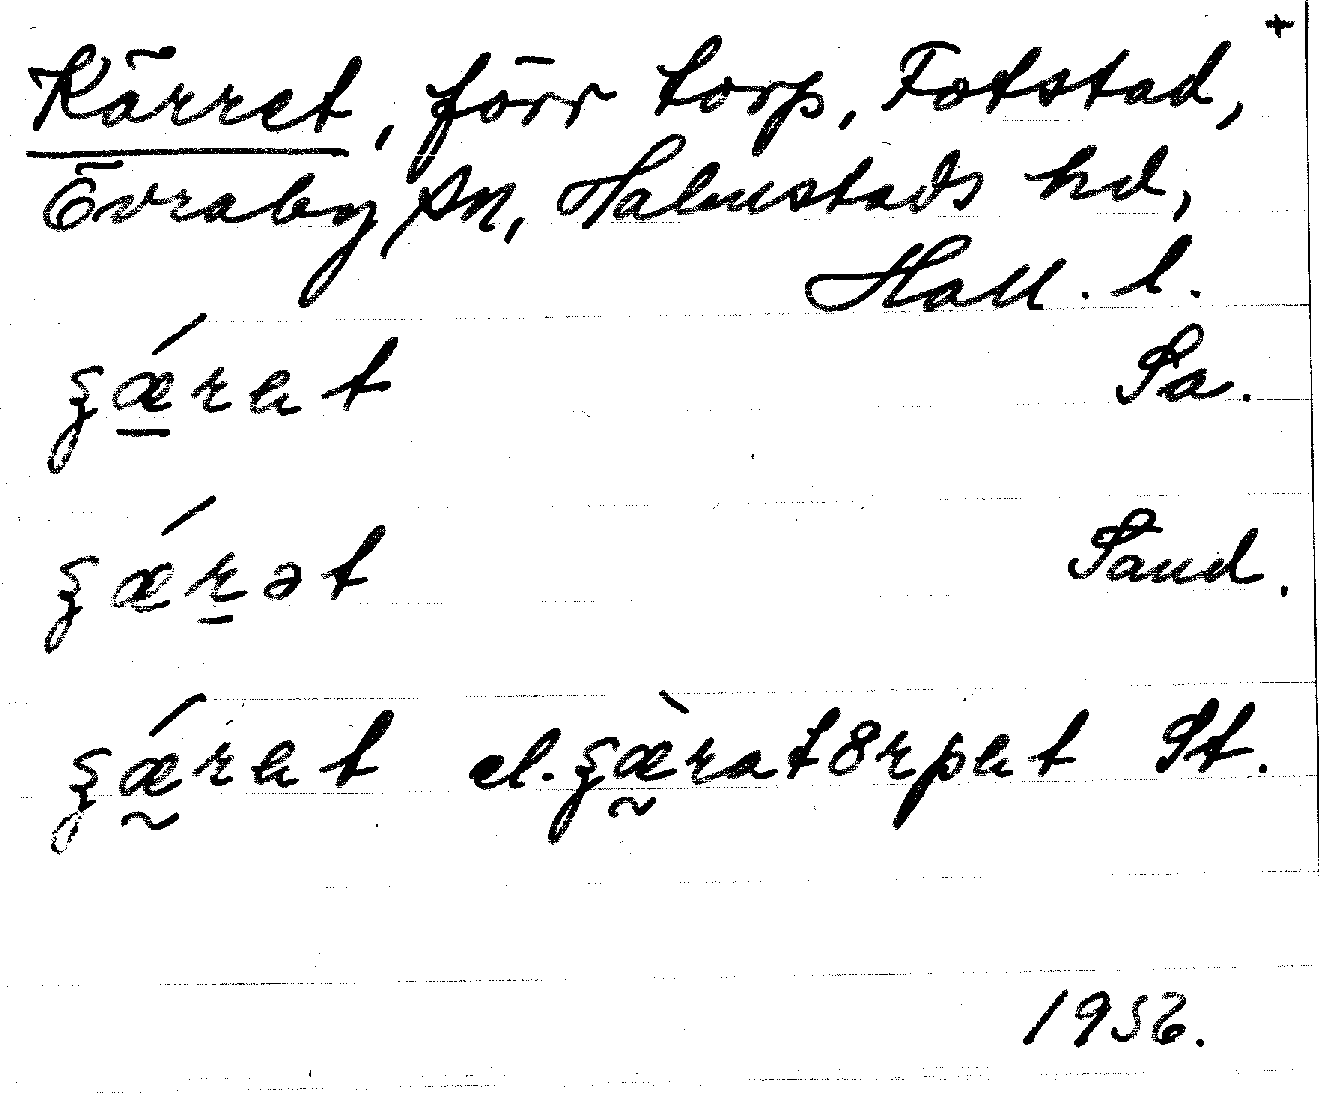 +
Kärret, förr torp, Fotstad,
Övraby sn, Halmstads hd,
Hall. l.
ʂǽ̠rɐt Sa.
ʂǽr̠ət Sand.
ʂǽ̰rɐt el. ʂæ̰̀rat8rpɐt St.
1956.